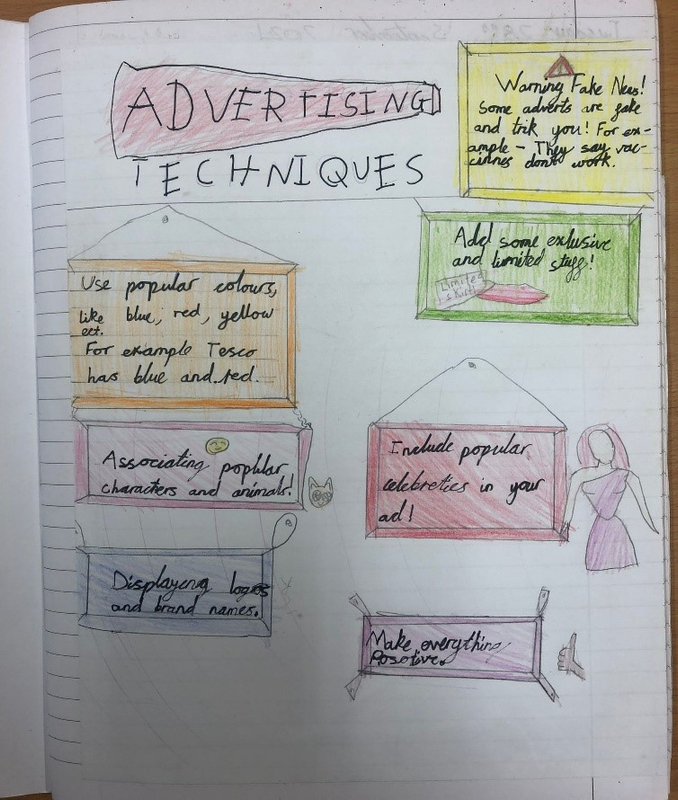 ADVERTISING
TECHNIQUES
Warning Fake News!
Some adverts are fake
and trik you! For ex-
ample - They say vac-
cinnes dont work.
Add some exlusive
and limited stuff!
Limited
Use popular colours,
like blue, red, yellow
ect.
For example Tesco
has blue and red.
Associating poplular
characters and animals!
Include popular
celebreties in your
ad!
Displayeng logos
and brand names.
Make everything
Posotive.